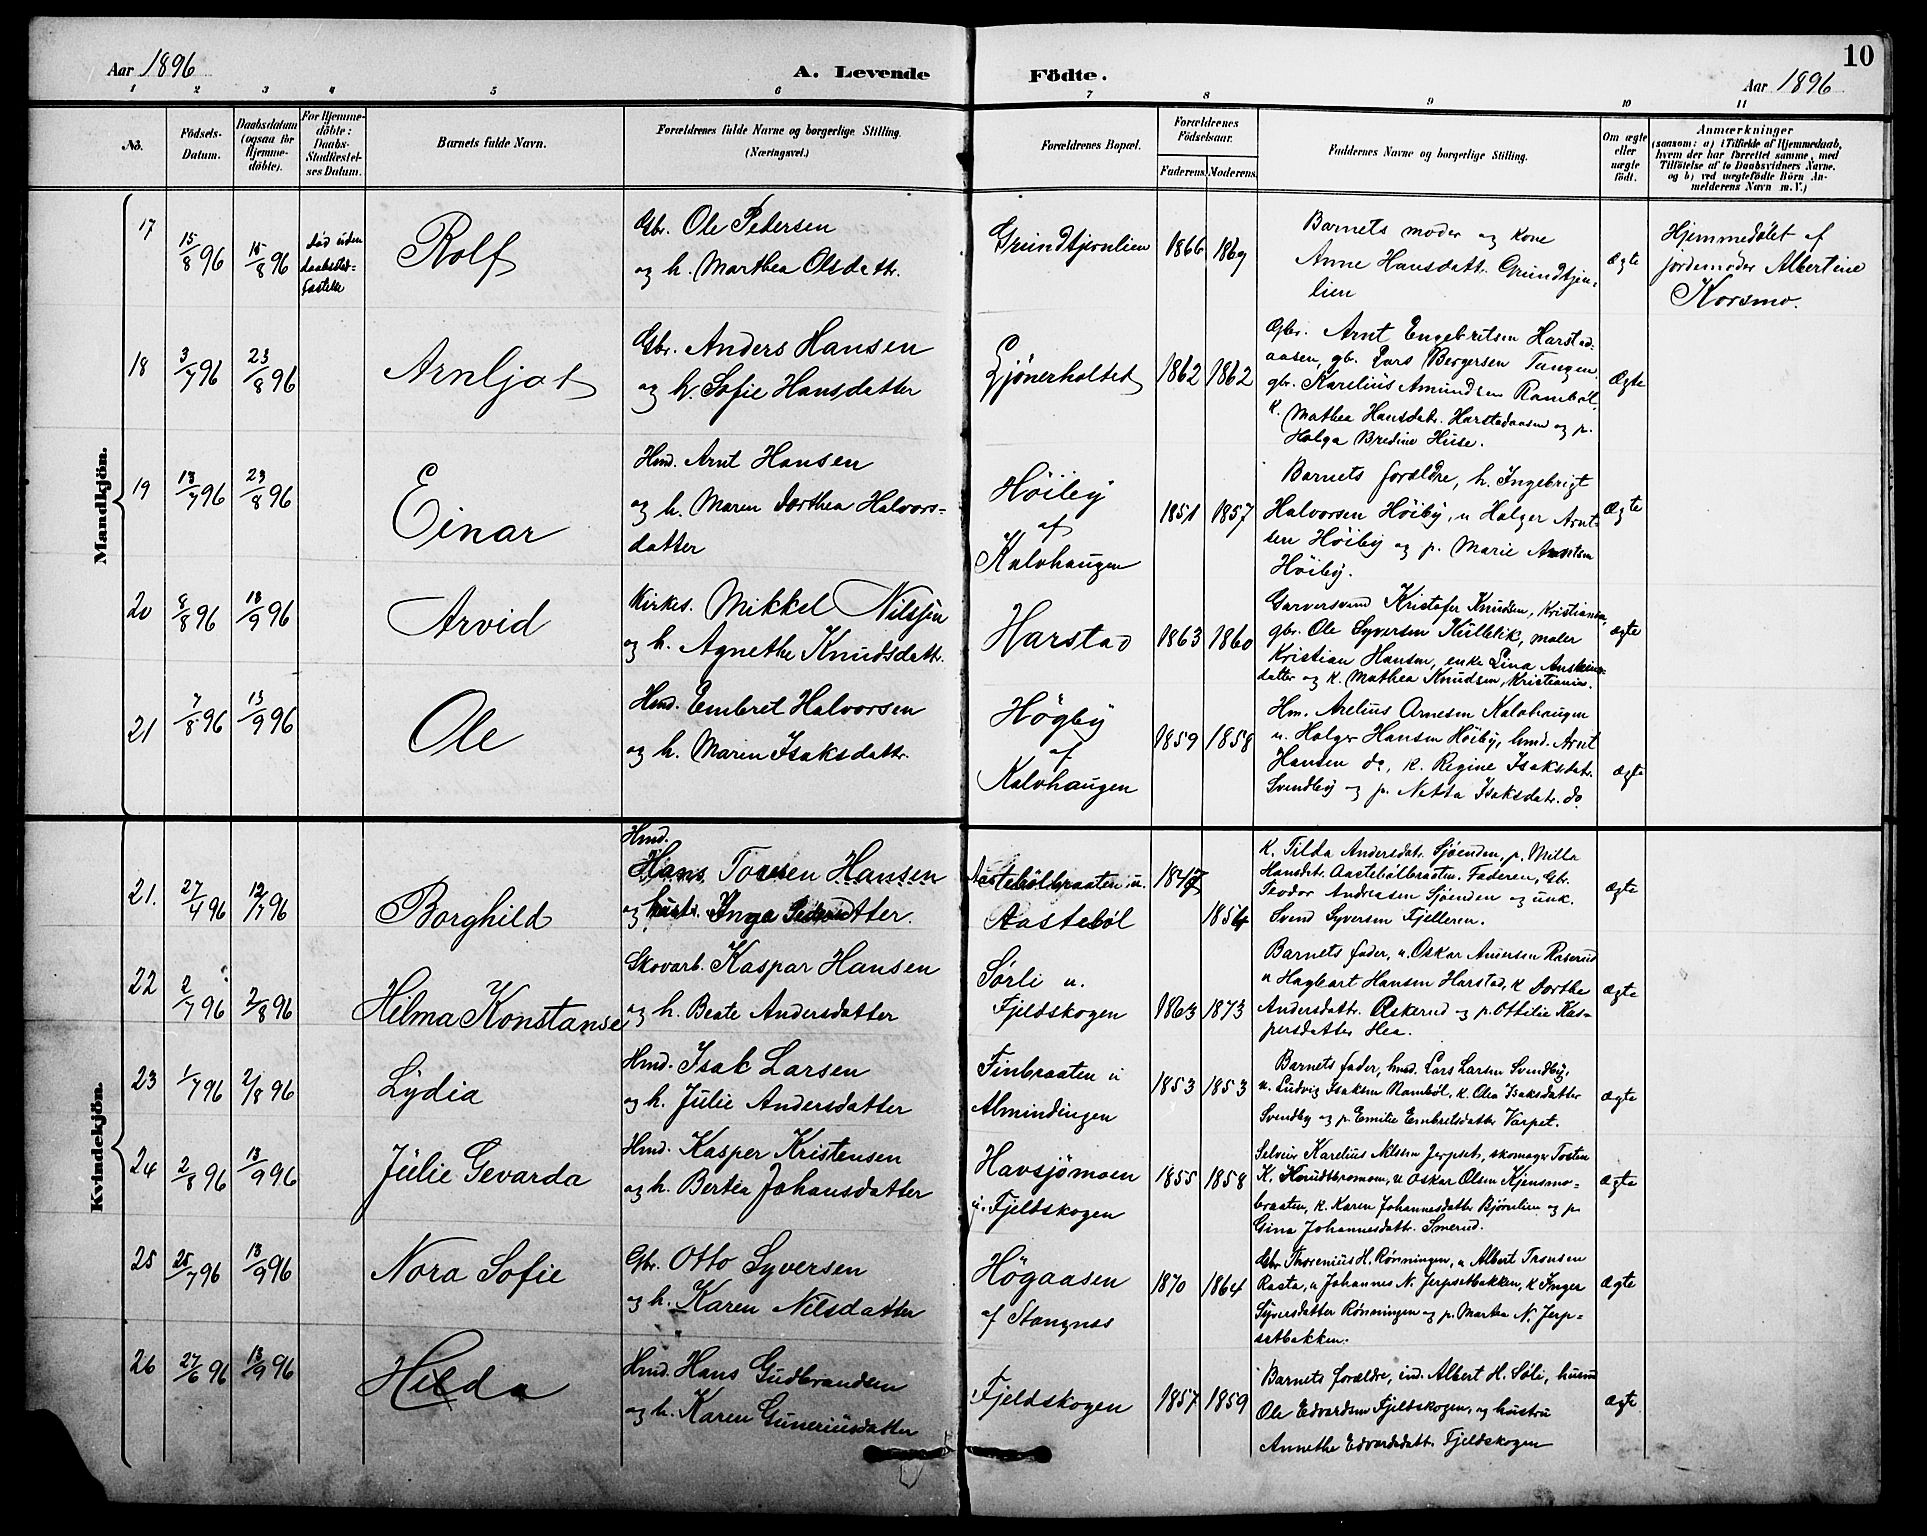 10
Aar 1896
A. Levende Födte.
Aar 1896
1 2 3 4 5 6 7 8 9 10 11
No.
Födsels-Datum.
Daabsdatum (ogsaa for Hjemme-döbte).
For Hjemme-döbte: Daabs-Stadfæstel-ses Datum.
Barnets fulde Navn.
Forældrenes fulde Navne og borgerlige Stilling.
(Næringsvei.)
Forældrenes Bopæl.
Forældrenes Födselsaar.
Faderens. Moderens.
Faddernes Navne og borgerlige Stilling.
Om ægte eller uægte födt.
Anmærkninger
(saasom: a) i Tilfælde af Hjemmedaab,
hvem der har forrettet samme, med
Tilföielse af to Daabsvidners Navne.
og b) ved uægtefödte Börn An-
melderens Navn m. V.)
Mandkjön.
17
15/8 96
15/8 96
død uden
daabsstad-
fæstelse
Rolf
Gbr. Ole Pedersen
og h. Marthea Olsdattr.
Grundtjernlien
1866 1869
Barnets moder og kone
Anne Hansdatt. Grundtjern-
lien
ægte
Hjemmedøbt af
jordemoder Albertine
Korsmo.
18
3/7 96
23/8 96
Arnljot
Gbr. Anders Hansen
og h. Sofie Hansdatter
Gjönerholtet
1862 1862
Gbr. Arnt Engebretsen Harstad-
aasen, gb. Lars Bergersen Tangen
gbr. Karelius Amundsen Ramböl,
k. Mathea Hansdatr. Harstadaasen og p.
Helga Bredine Huse.
Ægte
19
13/7 96
23/8 96
Einar
Hmd. Arnt Hansen
og h. Maren Dorthea Halvors-
datter
Höiby
af
Kalvhaugen
1851 1857
Barnets forældre, h. Ingebrigt
Halvorsen Höiby, u Holger Arnt-
sen Höiby og p. Marie Arntsen
Höiby.
Ægte
20
8/8 96
13/9 96
Arvid
Kirkes. Mikkel Nilssen
og h. Agnethe Knudsdatr.
Harstad
1863 1860
Garversvend Kristofer Knudsen, Kristiania,
gbr. Ole Syversen Kulblik, maler
Kristian Hansen, enke Lina Anstens-
datter og k. Mathea Knudsen, Kristiania.
ægte
21
7/8 96
13/9 96
Ole
Hmd. Embret Halvorsen
og h. Maren Isaksdattr.
Högby
af
Kalvhaugen
1859 1858
Hm. Arelius Arnesen Kalvhaugen
u. Holger Hansen Höiby, hmd. Arnt
Hansen do, k. Regine Isaksdatr.
Svendby og p. Netta Isaksdatr. do
ægte
Kvindekjön.
21.
27/4 96
12/7 96
Borghild
Hmd.
Hans Hansen
og Inga
Aastebölbraaten u.
Aasteböl
1854
k. Tilda Andersdat. Sjøenden, p. Milla
Hansdt. Aastebölbraaten. Faderen, Gbr.
Teodor Andreasen Sjøenden og unk.
Svend Syversen Fjelleren.
ægte
22
2/7 96
2/8 96
Hilma Konstanse
Skovarb. Kaspar Hansen
og h. Beate Andersdatter
Sørli u.
Fjeldskogen
1863 1873
Barnets fader, u. Oskar Raserud
u Hagbart Hansen Harstad, k Dorthe
Andersdattr. Askerud og p. Ottilie Kas-
persdatter Hea.
ægte
23
1/7 96
2/8 96
Lydia
Hmd. Isak Larsen
og h. Julie Andersdatter
Finbraaten u
Almindingen
1853 1853
Barnets fader, hmd. Lars Larsen Svendby,
u. Ludvig Isaksen Ramböl, k. Olea Isaksdatter
Svendby og p. Emilie Embretsdatter Varpet.
ægte
24
2/8 96
13/9 96
Julie Gevarda
Hmd. Kasper Kristensen
og h. Bertea Johansdatter
Havsjömoen
u. Fjeldskogen
1855 1858
Selveier Karelius Nilssen Jerpset, skomager Tosten
K. Knudtbromoen, u Oskar Olsen Kjensmo-
braaten, k. Karen Johannesdatter Bjørnlien og p.
Gina Johannesdatt. Smerud.
ægte
25
25/7 96
13/9 96
Nora Sofie
Gbr. Otto Syversen
og h. Karen Nilsdatter
Högaasen
af Stangnes
1870 1864
Gbr Thorenius H. Rönningen, u Albert Tronsen
Rasta, u Johannes N. Jerpsetbakken, k Inger
Syversdatter Rönningen og p. Martea N. Jerp-
setbakken.
ægte
26
27/6 96
13/9 96
Hilda
Hmd. Hans Gudbrandsen
og h. Karen Guneriusdatter
Fjeldskogen
1857 1859
Barnets forældre, ind. Albert H. Söli, husmd
Ole Edvardsen Fjeldskogen, og hustru
Annethe Edvardsdatt. Fjeldskogen
ægte